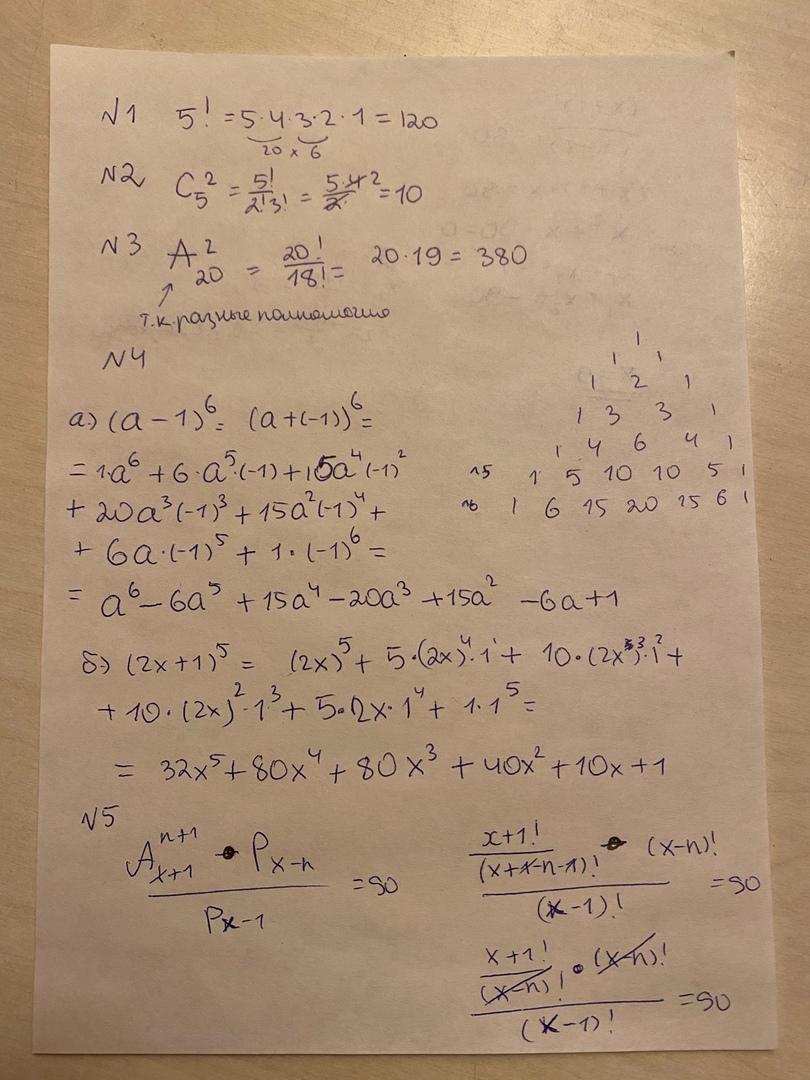 N1 5! = 5·4·3·2·1 = 120
20 x 6
N2 C₅² = 5!/2!3! = 5·4²/2 = 10
N3 A₂₀² = 20!/18! = 20·19 = 380
т.к. разные полномочия
N4
1
1 1
1 2 1
1 3 3 1
1 4 6 4 1
n5 1 5 10 10 5 1
n6 1 6 15 20 15 6 1
а.) (a-1)⁶ = (a+(-1))⁶ =
= 1·a⁶ + 6·a⁵·(-1) + 15a⁴(-1)²
+ 20a³(-1)³ + 15a²(-1)⁴ +
+ 6a·(-1)⁵ + 1·(-1)⁶ =
= a⁶ - 6a⁵ + 15a⁴ - 20a³ + 15a² - 6a + 1
б) (2x+1)⁵ = (2x)⁵ + 5·(2x)⁴·1¹ + 10·(2x)³·1² +
+ 10·(2x)²·1³ + 5·2x·1⁴ + 1·1⁵ =
= 32x⁵ + 80x⁴ + 80x³ + 40x² + 10x + 1
N5
Aₓ₊₁ⁿ⁺¹ · Pₓ₋ₙ / Pₓ₋₁ = 90
x+1!/(x+1-n-1)! · (x-n)! / (x-1)! = 90
x+1!/(x-n)! · (x-n)! / (x-1)! = 90